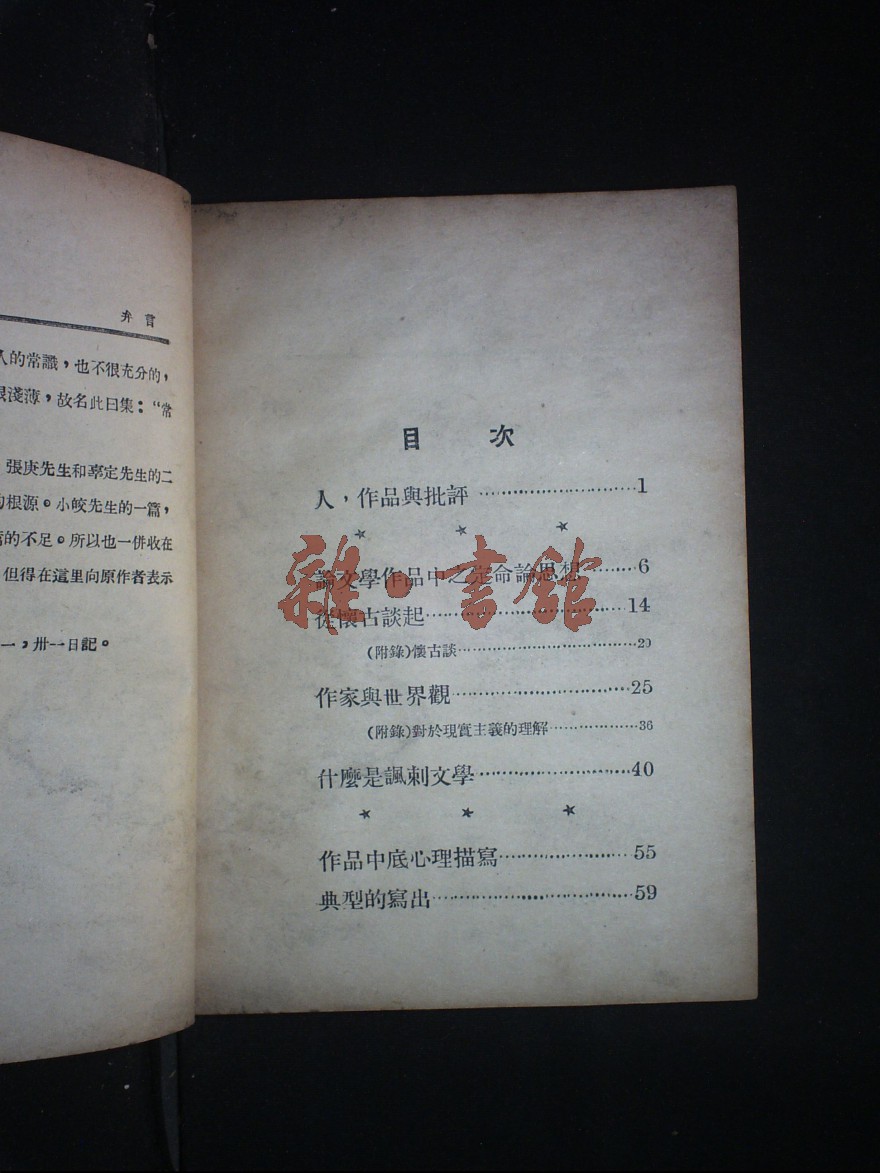 弁言
人的常識，也不很充分的，
淺薄，故名此曰集：“常
張庚先生和辜定先生的二
根源。小皎先生的一篇，
的不足。所以也一併收在
但得在這里向原作者表示
一，卅一日記。
目 次
人，作品與批評 1
* * *
論文學作品中之定命論思想 6
從懷古談起 14
(附錄)懷古談 20
作家與世界觀 25
(附錄)對於現實主義的理解 36
什麼是諷刺文學 40
* * *
作品中底心理描寫 55
典型的寫出 59
雜·書館